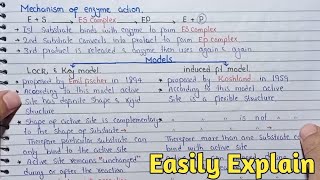 Mechanism of enzyme action.
E + S → ES complex → EP → E + P
→ 1st Substrate binds with enzyme to form ES complex
→ 2nd Substrate Converts into Product to form EP complex
→ 3rd product is released & enzyme then uses again & again
Models
Lock & Key model
→ proposed by Emil fischer in 1894
→ According to this model active
site has definite Shape & rigid
structure
→ Shape of active site is complementary
to the Shape of Substrate
→ Therefore particular Substrate can
only bind to the active site
→ Active site remains "unchanged"
during or after the reaction
induced fit model
→ proposed by Koshland in 1959
→ According to this model active
site is a flexible structure
" " " " is not "
Therefore more than one Substrate can
bind with active site
Easily Explain